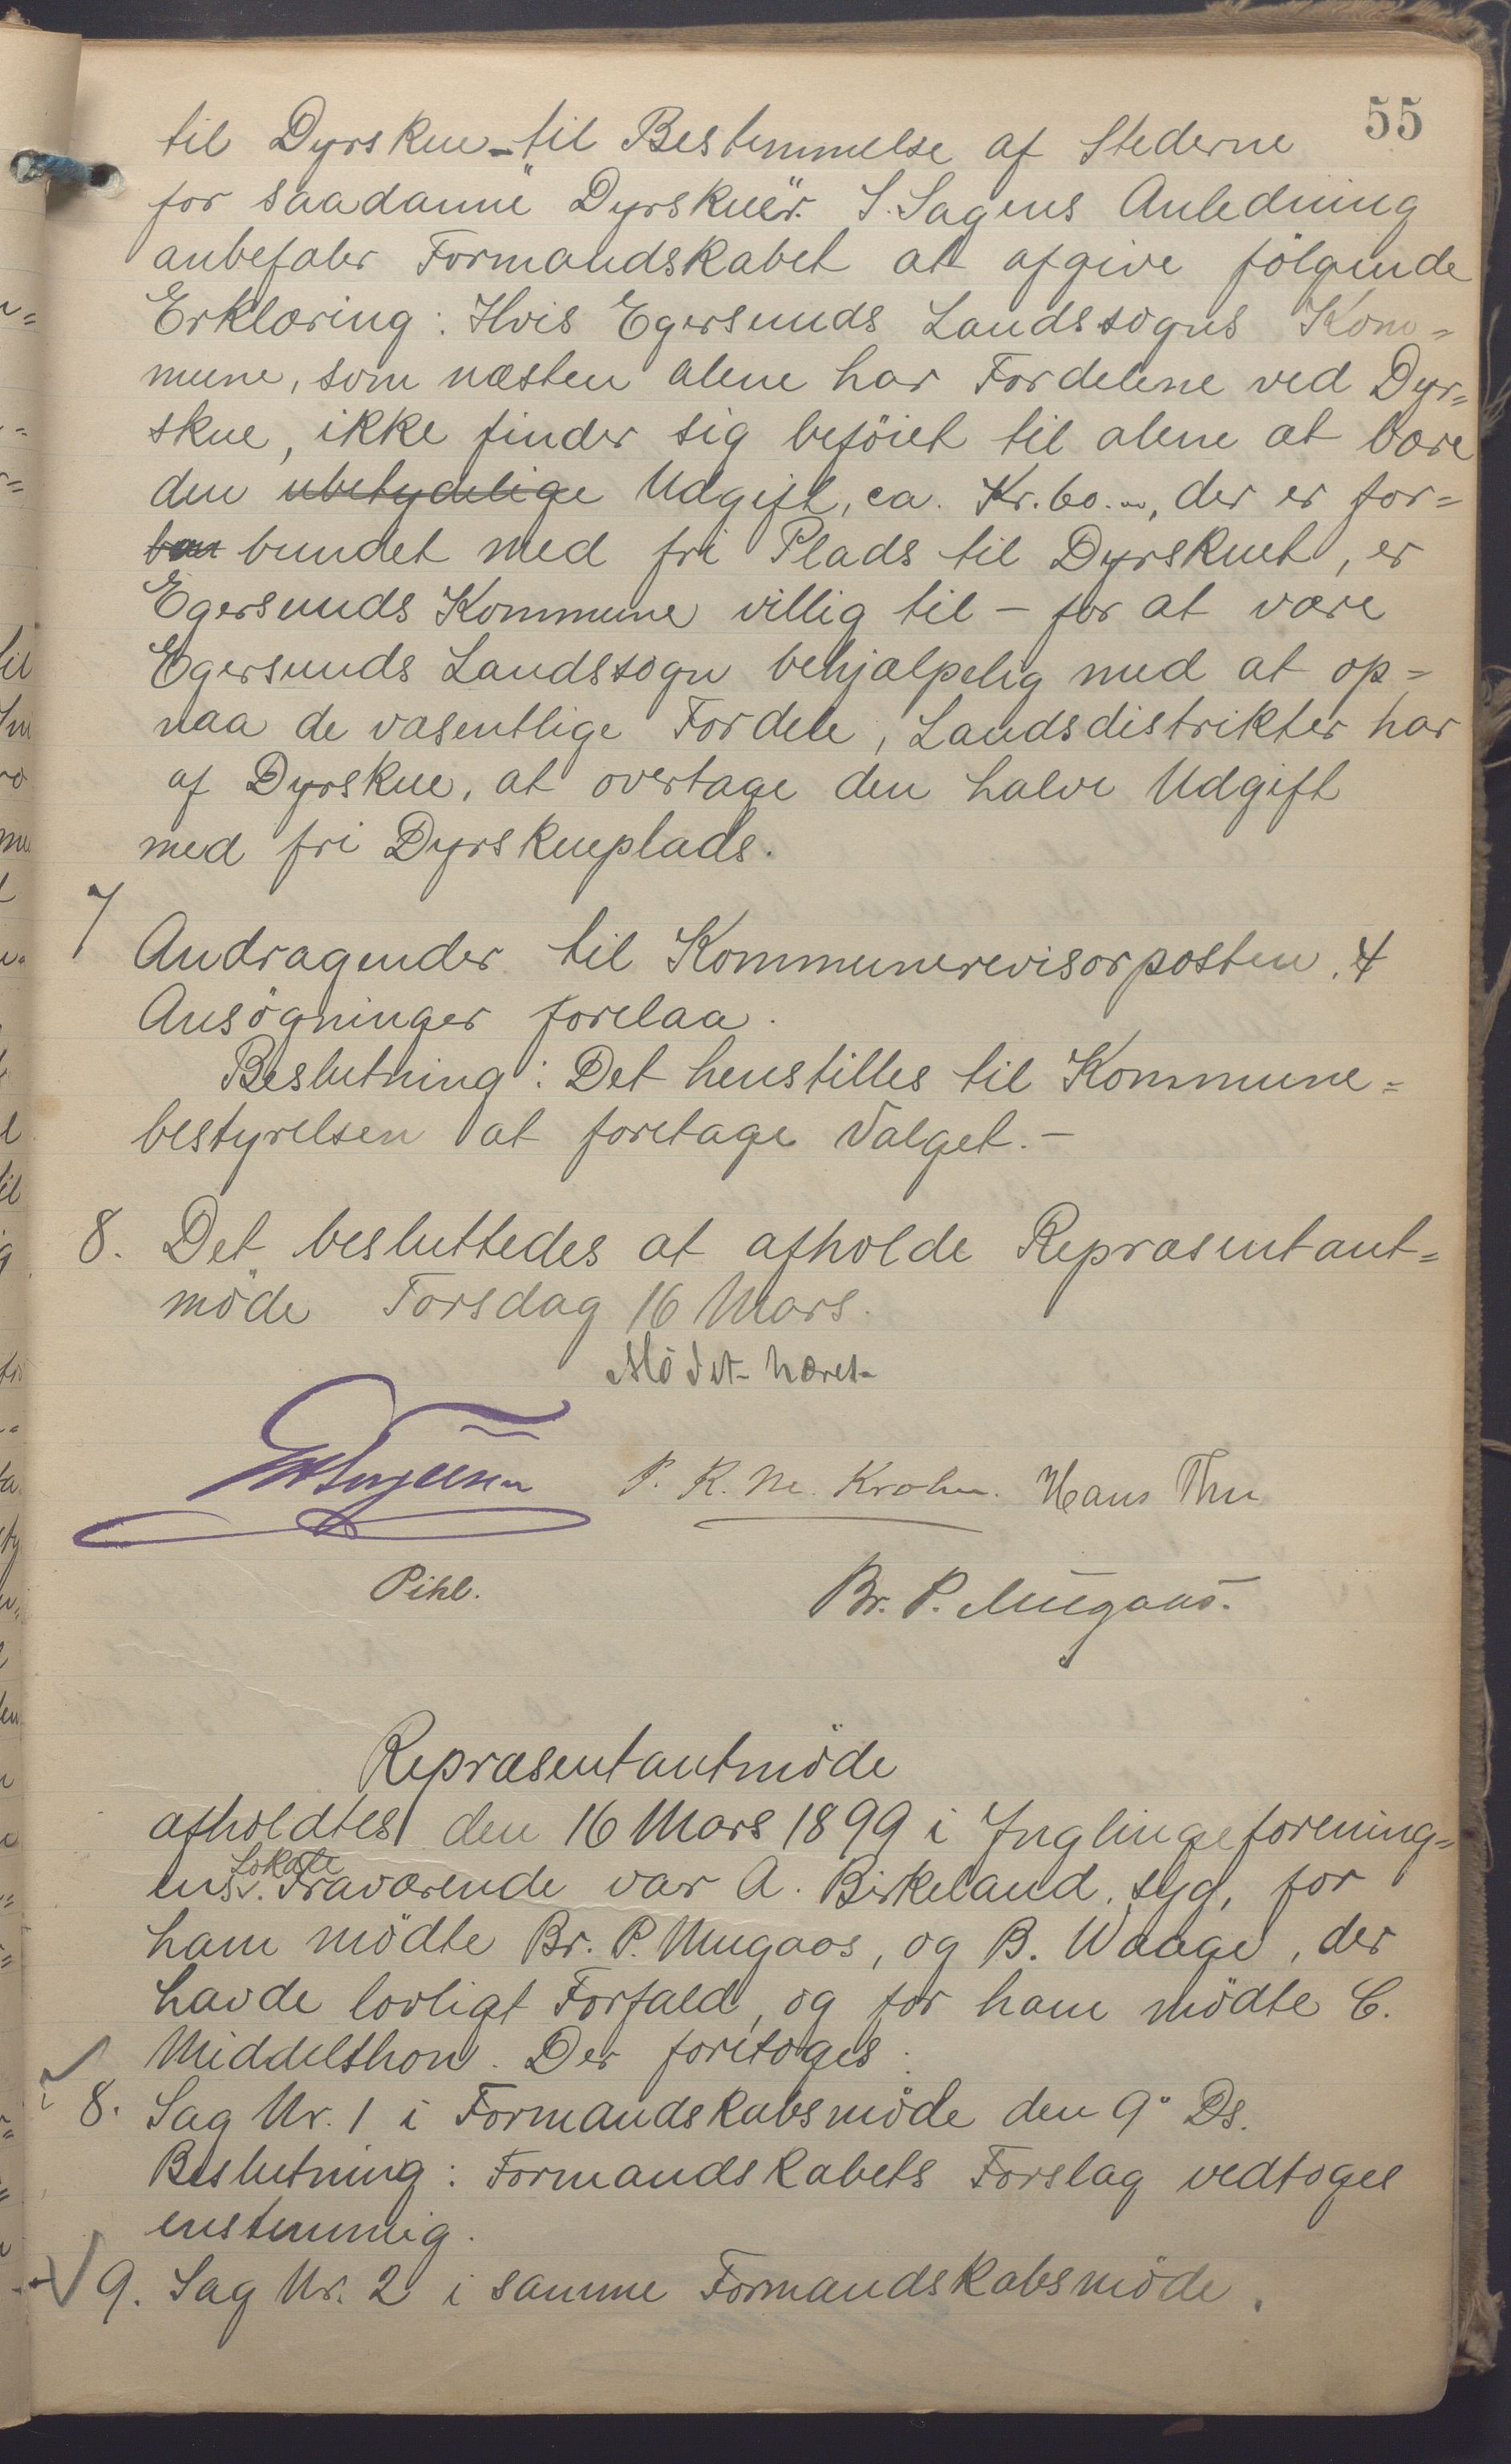 55
til Dyrskue - til Bestemmelse af Stederne
for saadanne Dyrskuer. I Sagens Anledning
anbefaler Formandskabet at afgive følgende
Erklæring: Hvis Egersunds Landssogns Kom=
mune, som næsten alene har Fordelene ved Dyr=
skue, ikke finder sig beføiet til alene at bære
den ubetydelige Udgift, ca. Kr. 60.-, der er for=
bundet med fri Plads til Dyrskuet, er
Egersunds Kommune villig til - for at være
Egersunds Landssogn behjælpelig med at op=
naa de væsentlige Fordele, Landsdistrikter har
af Dyrskue, at overtage den halve Udgift
med fri Dyrskueplads.
7 Andragender til Kommunerevisorposten. 4
Ansøgninger forelaa.
Beslutning: Det henstilles til Kommune=
bestyrelsen at foretage Valget. -
8. Det besluttedes at afholde Repræsentant=
møde Torsdag 16 Mars.
Mødet hævet
P. R. M. Krohn. Hans Thu
Pihl. Br. P. Mugaas.
Repræsentantmøde
afholdtes den 16 Mars 1899 i Ynglingeforening=
ens Lokale. Fraværende var A. Birkeland, syg, for
ham mødte Br. P. Mugaas, og B. Waage, der
havde lovligt Forfald, og for ham mødte C.
Middelthon. Der foretoges:
8. Sag Nr. 1 i Formandskabsmøde den 9de Ds.
Beslutning: Formandskabets Forslag vedtoges
enstemmig.
9. Sag Nr. 2 i samme Formandskabsmøde.